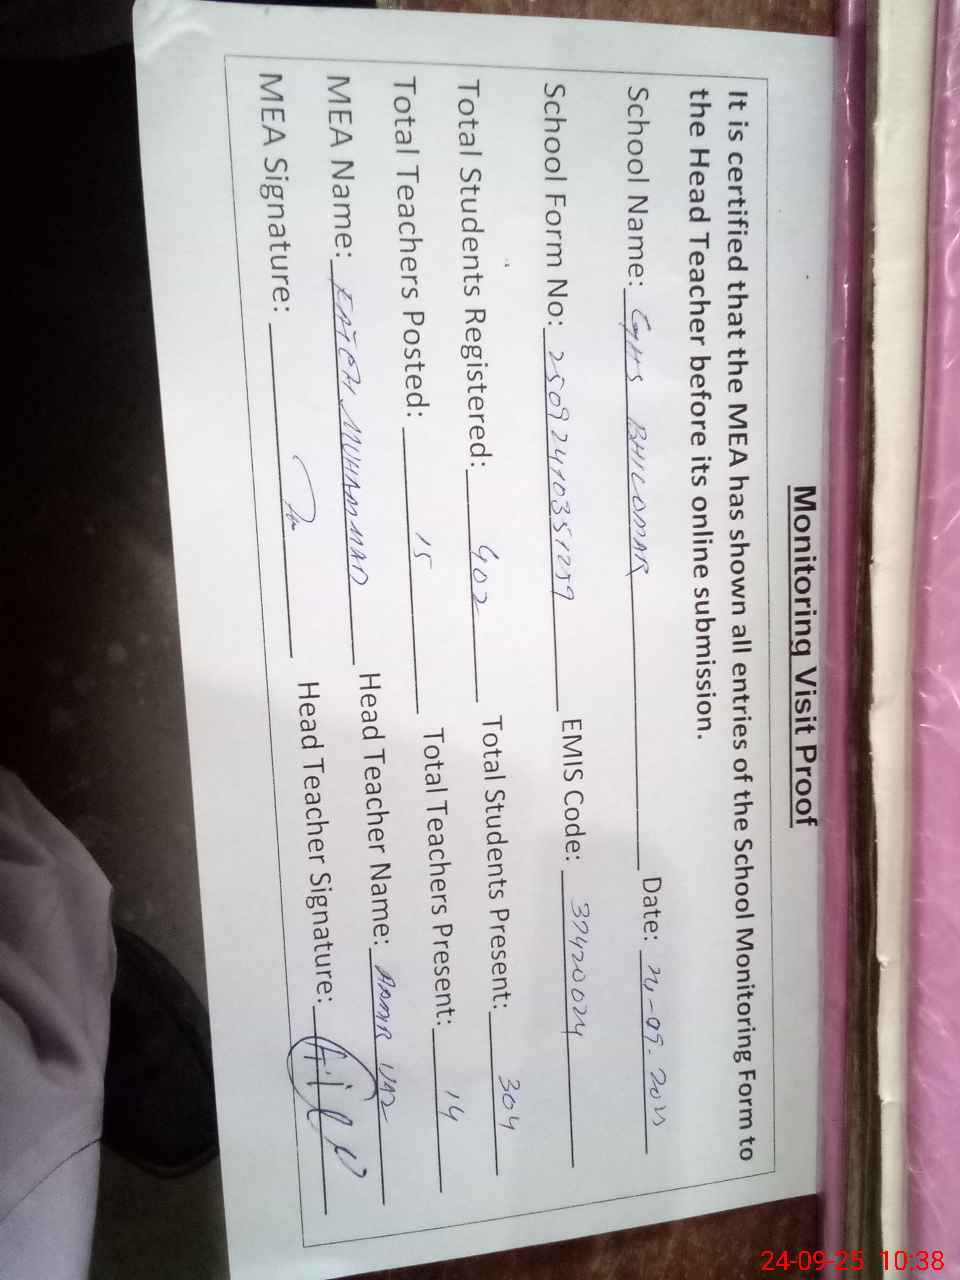 Monitoring Visit Proof
It is certified that the MEA has shown all entries of the School Monitoring Form to
the Head Teacher before its online submission.
School Name: GHS BHILOMAR Date: 24-09-2025
School Form No: 25092410351259 EMIS Code: 37420024
Total Students Registered: 402 Total Students Present: 304
Total Teachers Posted: 15 Total Teachers Present: 14
MEA Name: FATEH MUHAMMAD Head Teacher Name:
MEA Signature: Head Teacher Signature:
24-09-25 10:38